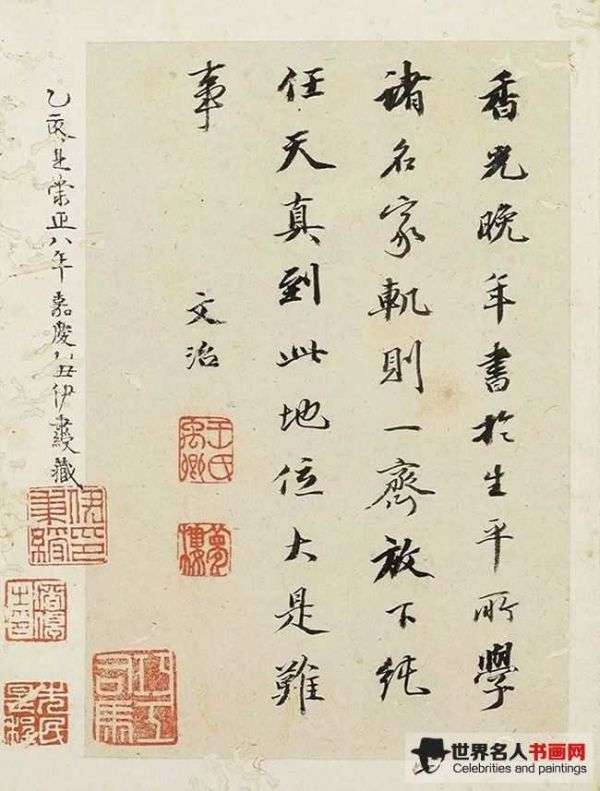 香光晚年書於生平所學
諸名家軌則一齊放下純
任天真到此地位大是難
事
文治
王氏禹卿
夢樓
乙亥是崇正八年嘉慶乙丑伊秉綬藏
伊印秉綬
先民是程
世界名人书画网
Celebrities and paintings